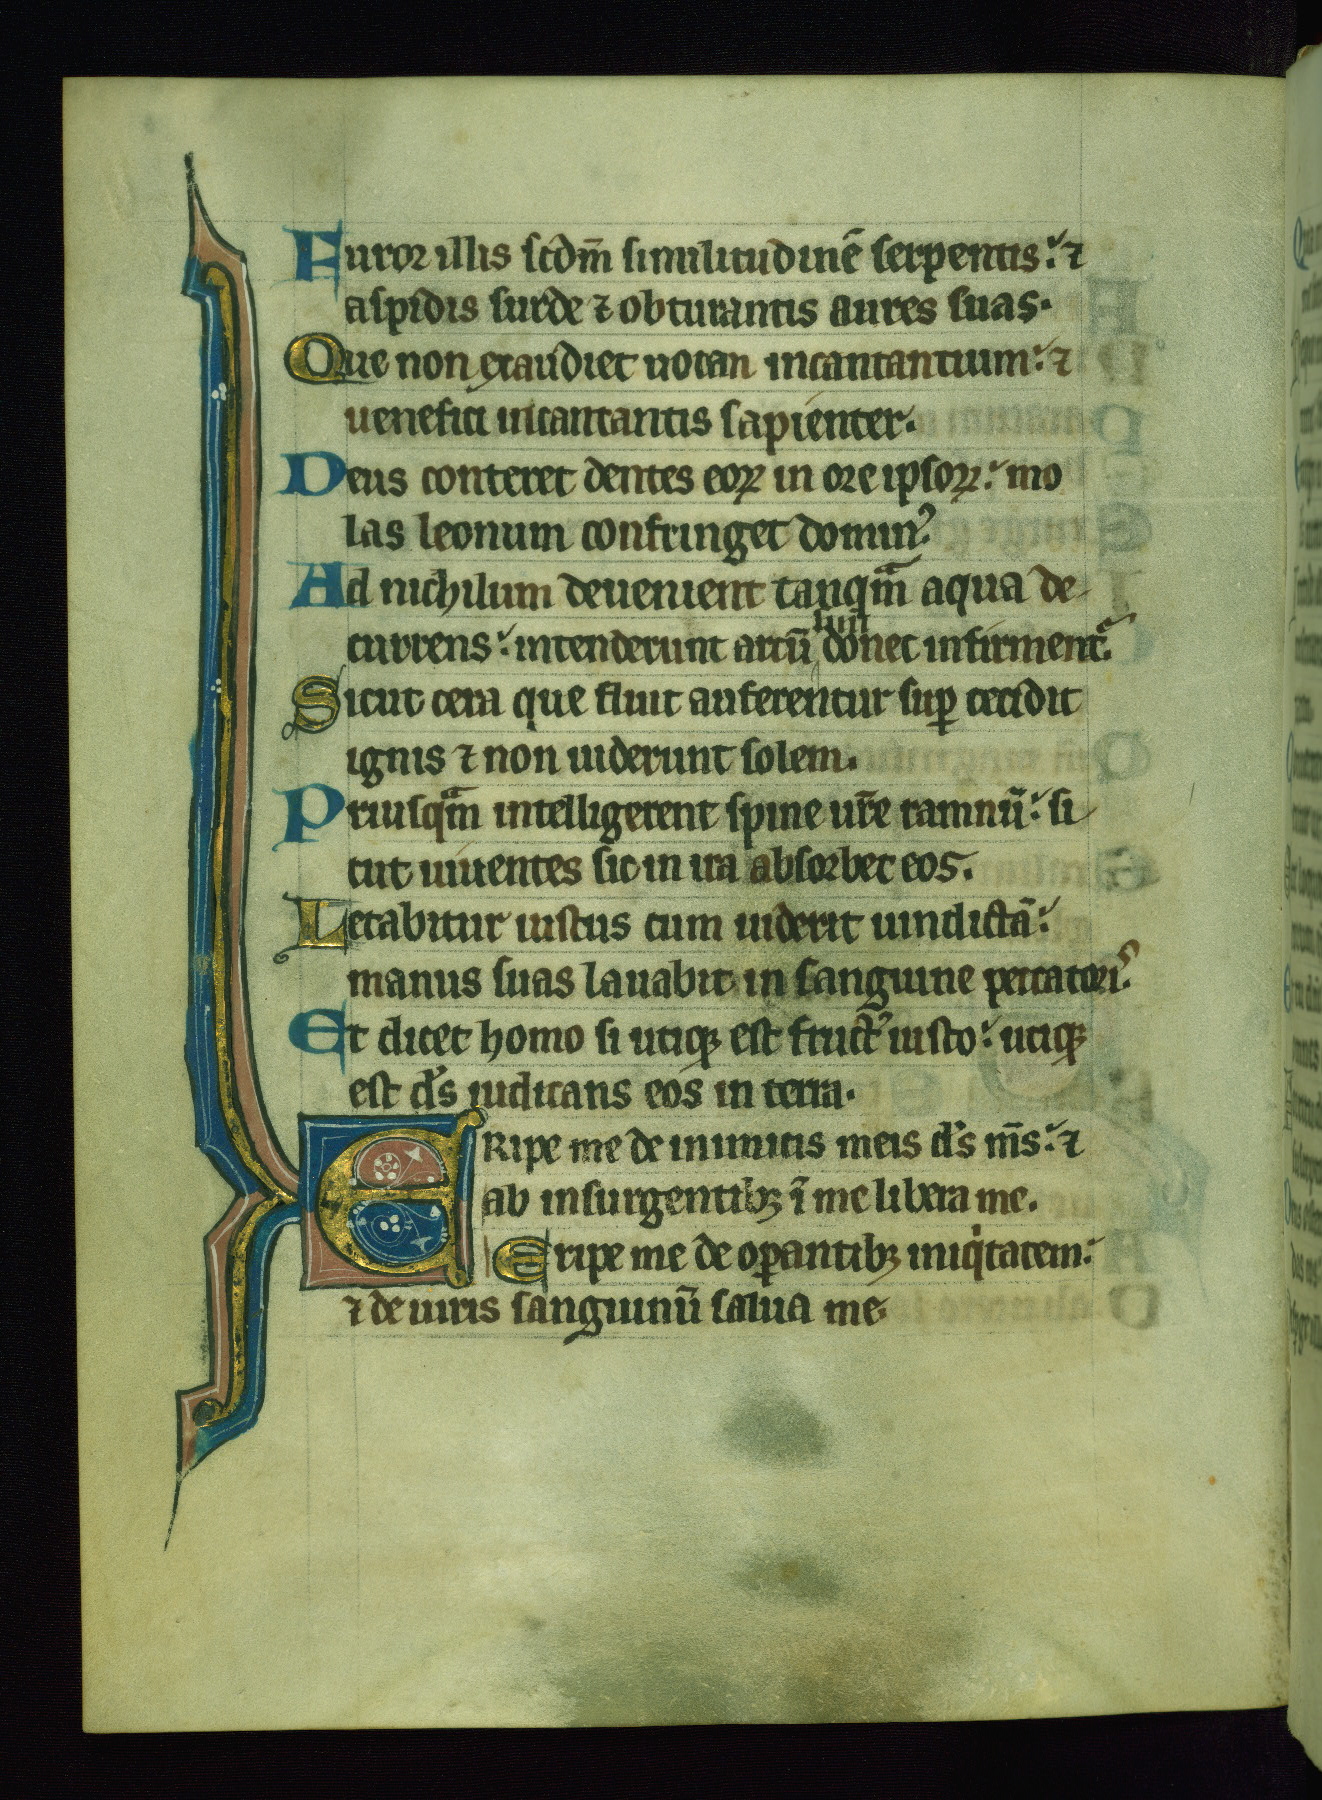 Furor illis scdm̄ similitudinē serpentis: ⁊
aspidis surde ⁊ obturantis aures suas.
Que non exaudiet uocan incantantium: ⁊
uenefici incantantis sapienter.
Deus conteret dentes eoꝝ in ore ipsoꝝ: mo
las leonum confringet dominꝰ
Ad nichilum deuenient tanqm̄ aqua de
currens: intenderunt arcū suū donec infirment᷑.
Sicut cera que fluit auferentur suꝑ cecidit
ignis ⁊ non uiderunt solem.
Priusqm̄ intelligerent spine ur̄e ramnū: si
cut uiuentes sic in ira absorbet eos.
Letabitur iustus cum uiderit uindictā:
manus suas lauabit in sanguine peccatori᷒.
Et dicet homo si utiqꝫ est fructꝰ iusto: utiqꝫ
est d̄s iudicans eos in terra.
ERipe me de inimicis meis d̄s m̄s: ⁊
ab insurgentibꝫ ī me libera me.
Eripe me de oꝑantibꝫ iniqͥtatem:
⁊ de uiris sanguinū salua me